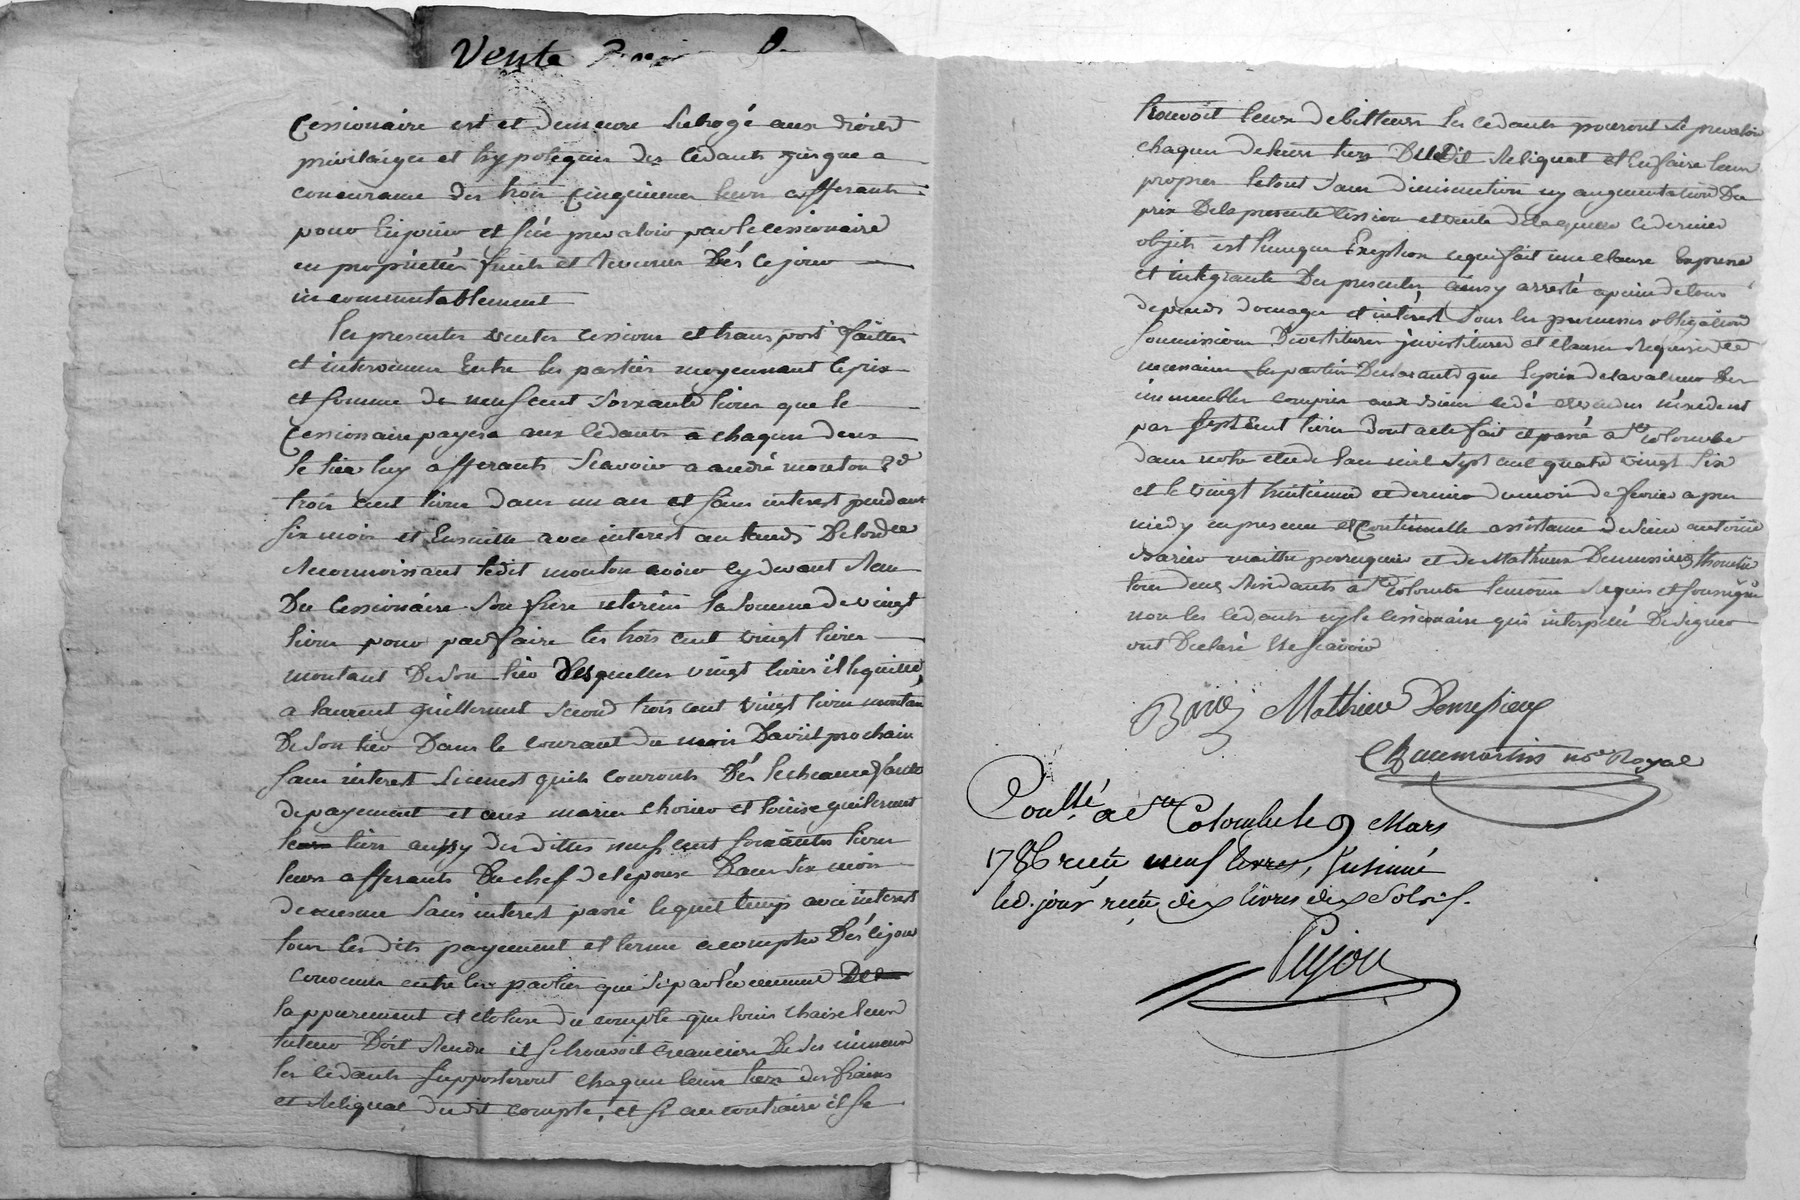 Vente
Cessionaire est et demeure subrogé aux droits
privilaiges et hypoteques des cedants jusque a
concurance des trois cinquiemes leurs afferants
pour Enjouir et s'en prevaloir par le cessionaire
en propriétés fruits et revenus Dés ce jour
incommutablement
les presentes ventes cessions et transport faittes
et intervenues Entre les parties moyennant le prix
et somme de neuf cent soixante livres que le
Cessionaire payera aux cedants a chaqun deux
le tier luy afferants Scavoir a andré mouton
trois cent livres dans un an et sans interest pendant
six mois et Ensuitte avec interest au taux De lorde
Reconnoissant ledit mouton avoir cy devant
Du Cessionaire son frere uterin la somme de vingt
livres pour parfaire les trois cent vingt livres
montant De son tier Desquelles vingt livres il le quitte,
a laurent guillermet second trois cent vingt livres montan
De son tier Dans le courant du mois D'avril prochain
sans interest Sicenest quils couronts Dés lecheance fautte
de payement et aux maries chorier et louise guillermet
leurs tiers aussy des dittes neuf cent soixantes livres
leurs afferants Du chef de lepouse Dans six mois
de mesme sans interest passé lequel temps avec interest
tous lesdits payement et terme a compter Dés cejour
convenu entre les parties que si par lévenement
lappurement et cloture du compte que louis chaise leur
tuteur Doit Rendre il se trouvoit creancier De ses mineurs
les cedants supposteront chaqun leurs tiers des frains
et Reliquat dudit compte, et si au contraire il se
trouvoit leurs debitteurs les cedants pouront se prevaloir
chaqun de leurs tiers Dudit Reliquat et en faire leurs
propres le tout sans diminution ny augmentation Du
prix De la presente cession et vente de laquelle ce dernier
objets est l'unique Exeption ce qui fait une clause Expresse
et integrante Des presentes ainsy arresté a peine de tous
depends domages et interest sous les promesses obligations
soumissions Divestitures jnvestitures et clauses Requises
necessaires les parties Declarants que le prix de la valeur Des
immeubles compris aux biens cedé et vendus n'exedent
pas sept cent livres Dont acte fait et passé a Ste colombe
dans notre etude lan mil sept cent quatre vingt six
et le vingt huitieme et dernier du mois de fevrier apres
miedy en presence et Continuelle assistance de sieur antoine
Barier maitre perruquier et de Mathieu Demussieux
tous deux Residants a Ste Colombe temoins Requis et soussignés
non les cedants ny le cessionaire qui interpellé De signer
ont Declaré ne scavoir
Mathieu Demussieux
Chaumartin nre Royal
Conllé a Ste Colombe le 9 Mars
1786 reçu neuf livres, Insinué
led. jour reçu dix livres dix Sols.
Pujou